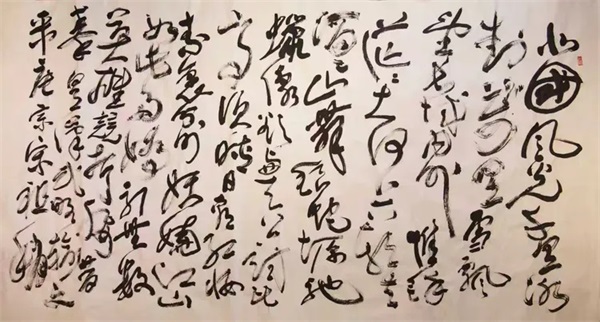 北國風光千里冰
封萬里雪飄
望長城内外惟餘
莽〻大河上下頓失
滔〻山舞銀蛇原馳
蠟象欲與天公試比
高須晴日看紅妝
素裹分外妖嬈江山
如此多嬌引無數
英雄競折腰惜
秦皇漢武略輸文
采唐宗宋祖稍